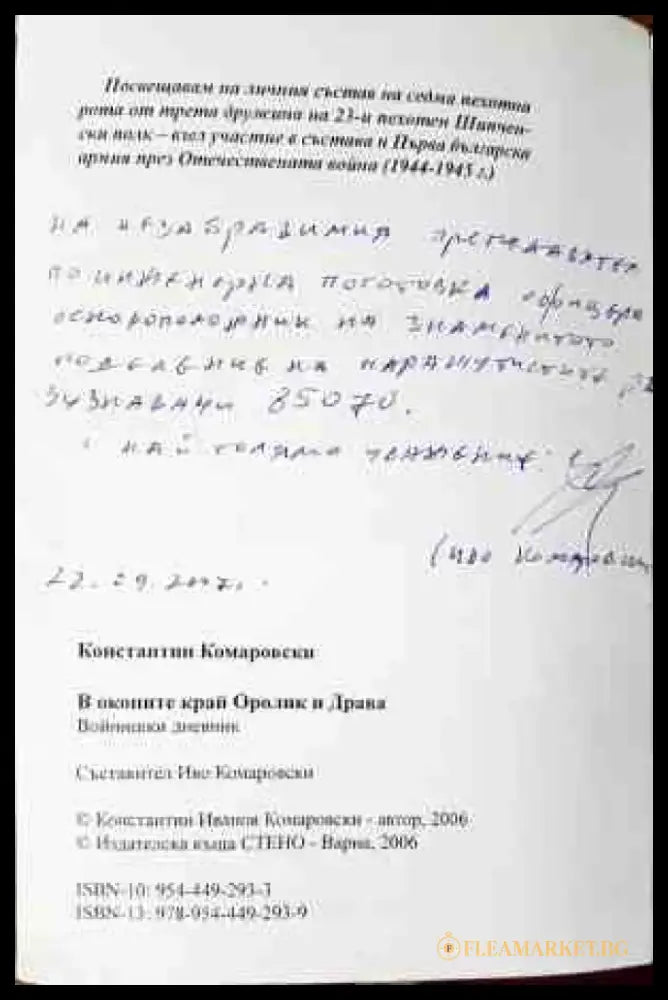 Посвещавам на личния състав на седма пехотна
рота от трета дружина на 23-и пехотен Шипчен-
ски полк – взел участие в състава и Първа българска
армия през Отечествената война (1944-1945 г.)
на незабравимия преподавател
по инженерна подготовка офицера
основоположник на знаменитото
поделение на парашутистите
85070.
с най голямо уважение:
(Иво Комаровски
22.09.2007г.
Константин Комаровски
В окопите край Оролик и Драва
Войнишки дневник
Съставител Иво Комаровски
© Константин Иванов Комаровски - автор, 2006
© Издателска къща СТЕНО - Варна, 2006
ISBN-10: 954-449-293-3
ISBN-13: 978-954-449-293-9
FLEAMARKET.BG